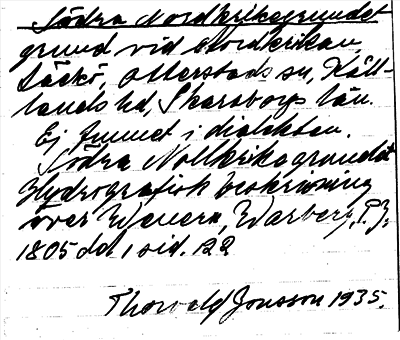 Södra Nordkrikagrundet
grund vid Nordkrikan,
Läckö, Otterstads sn, Kåll-
lands hd, Skarabogs län.
Ej funnet i dialekten.
Södra Nollkrikagrundet
Hydrografisk beskrivning
över Wenern, Warberg, P.J,
1805 del 1 sid. 122
Thorvald Jonsson 1935.